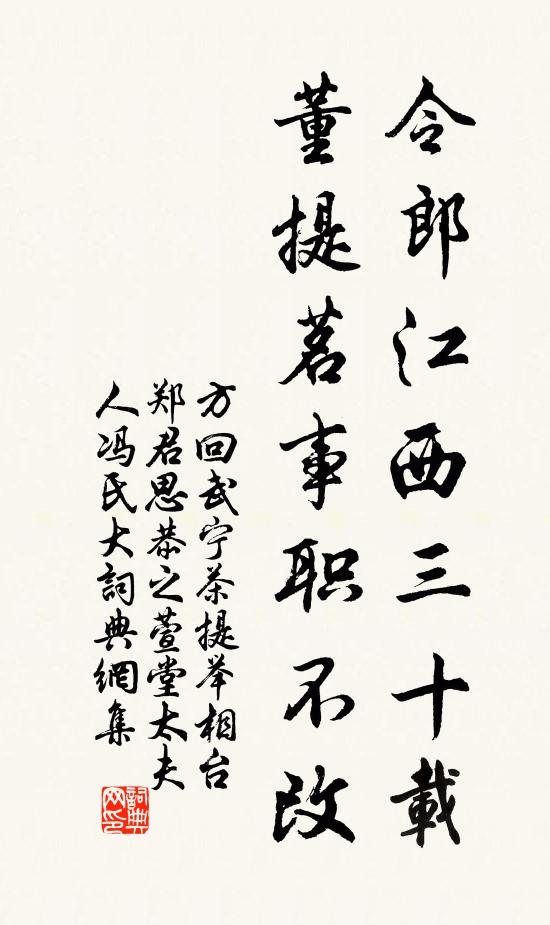 令郎江西三十載
董提茗事职不改
方回武宁茶提举相台
郑君思恭之萱堂太夫
人冯氏大詞典網集
詞典网印